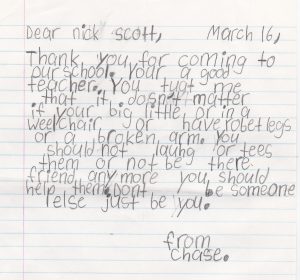 Dear nick scott, March 16,
Thank you for coming to
our school. Your a good
teacher. You tugt me
that it doesn't matter
if your big little or in a
weelchair or have robet legs
or a broken arm. You
should not laung or tees
them or not be there
friend any more you should
help them. Dont be someone
else just be you.
from
chase.